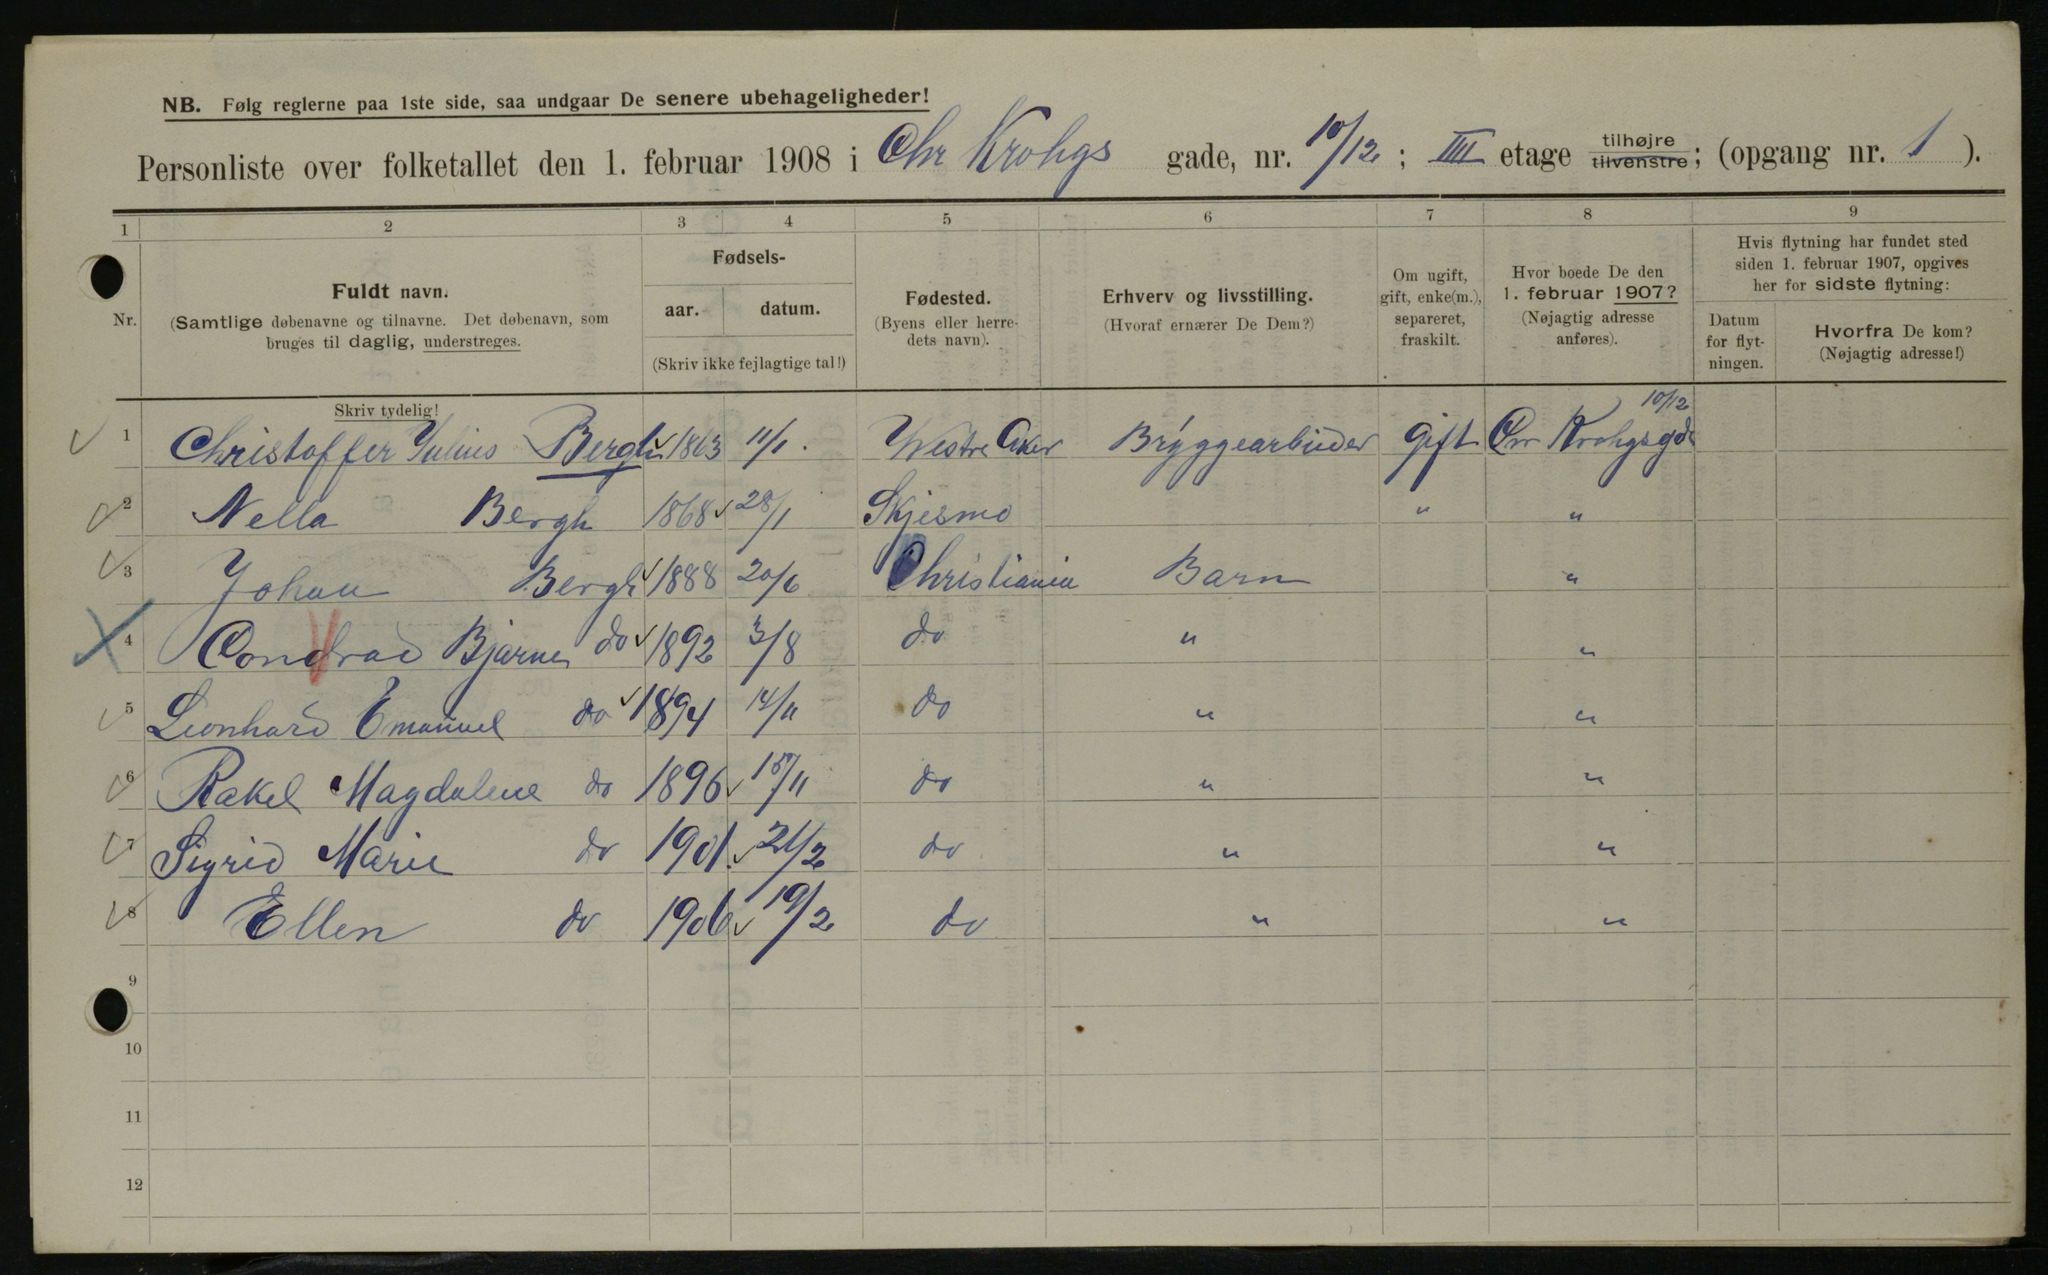 NB. Følg reglerne paa 1ste side, saa undgaar De senere ubehageligheder!
Personliste over folketallet den 1. februar 1908 i Chr Krohgs gade, nr. 10/12; IIII etage tilhøjre tilvenstre; (opgang nr. 1).
1 2 3 4 5 6 7 8 9
Nr.
Fuldt navn.
(Samtlige døbenavne og tilnavne. Det døbenavn, som
bruges til daglig, understreges.
Skriv tydelig!
Fødsels-
aar. datum.
(Skriv ikke fejlagtige tal!)
Fødested.
(Byens eller herre-
dets navn).
Erhverv og livsstilling.
(Hvoraf ernærer De Dem?)
Om ugift,
gift, enke(m.),
separeret,
fraskilt.
Hvor boede De den
1. februar 1907?
(Nøjagtig adresse
anføres).
Hvis flytning har fundet sted
siden 1. februar 1907, opgives
her for sidste flytning:
Datum
for flyt-
ningen.
Hvorfra De kom?
(Nøjagtig adresse!)
1 Christoffer Julius Bergh 1863 11/1. Westre Aker Bryggearbuder gift Chr Krohgsgd 10/12
2 Nella Bergh 1868 28/1 Skjesmo " "
3 Johan Bergh 1888 20/6 Christiania Barn "
4 Condrad Bjarne do 1892 3/8 do " "
5 Leonhard Emanuel do 1894 14/11 do " "
6 Rakel Magdalene do 1896 15/11 do " "
7 Sigrid Marie do 1901. 21/2 do " "
8 Ellen do 1906 19/2 do " "
9
10
11
12